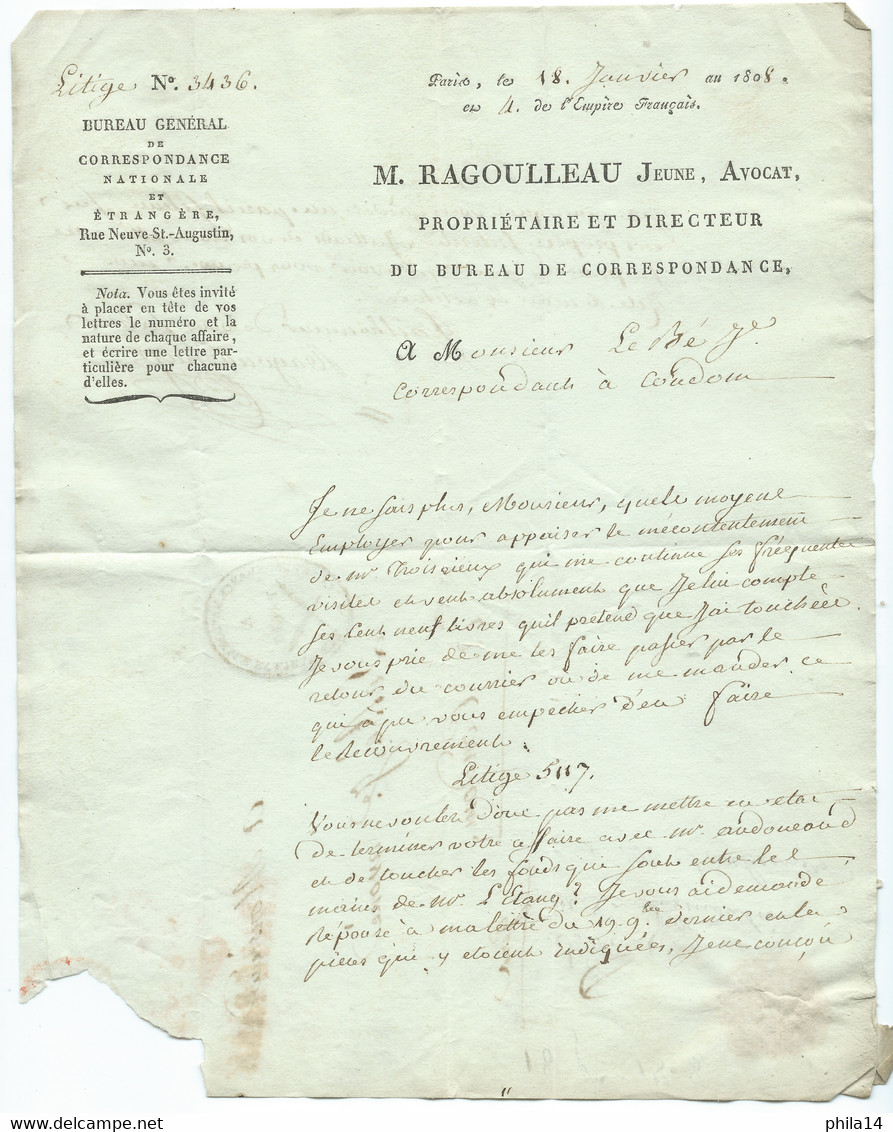 Litige N.º 3436.
BUREAU GÉNÉRAL
DE
CORRESPONDANCE
NATIONALE
ET
ÉTRANGÈRE,
Rue Neuve-St.-Augustin,
N.º 3.
Nota. Vous êtes invité
à placer en tête de vos
lettres le numéro et la
nature de chaque affaire,
et écrire une lettre par-
ticulière pour chacune
d'elles.
Paris, le 18. Janvier an 1808.
et 4. de l'Empire Français.
M. RAGOULLEAU JEUNE, AVOCAT,
PROPRIÉTAIRE ET DIRECTEUR
DU BUREAU DE CORRESPONDANCE,
A Monsieur Le Bé Je
Correspondant à Condom
Je ne sais plus, Monsieur, quele moyene
Employer pour appaiser le mecontentement
de mr. qui me continue ses fréquente
visites et veut absolument que Je lui compte
ses Cent neuf livres qu'il pretend que J'ai touchées.
Je vous prie de me les faire passer par le
retour du courrier ou de me mander ce
qui à pu vous empêcher d'en faire
le Recouvrement.
Litige 5117.
Vous ne voulez donc pas me mettre en etat
de terminer votre affaire avec mr.
et de toucher les fonds que sont entre les
mains de mr. L'Etang? Je vous ai demandé
réponse à ma lettre du 19. 9bre dernier et les
pieces qui y etoient indiquées, Je ne conçoi
phila14